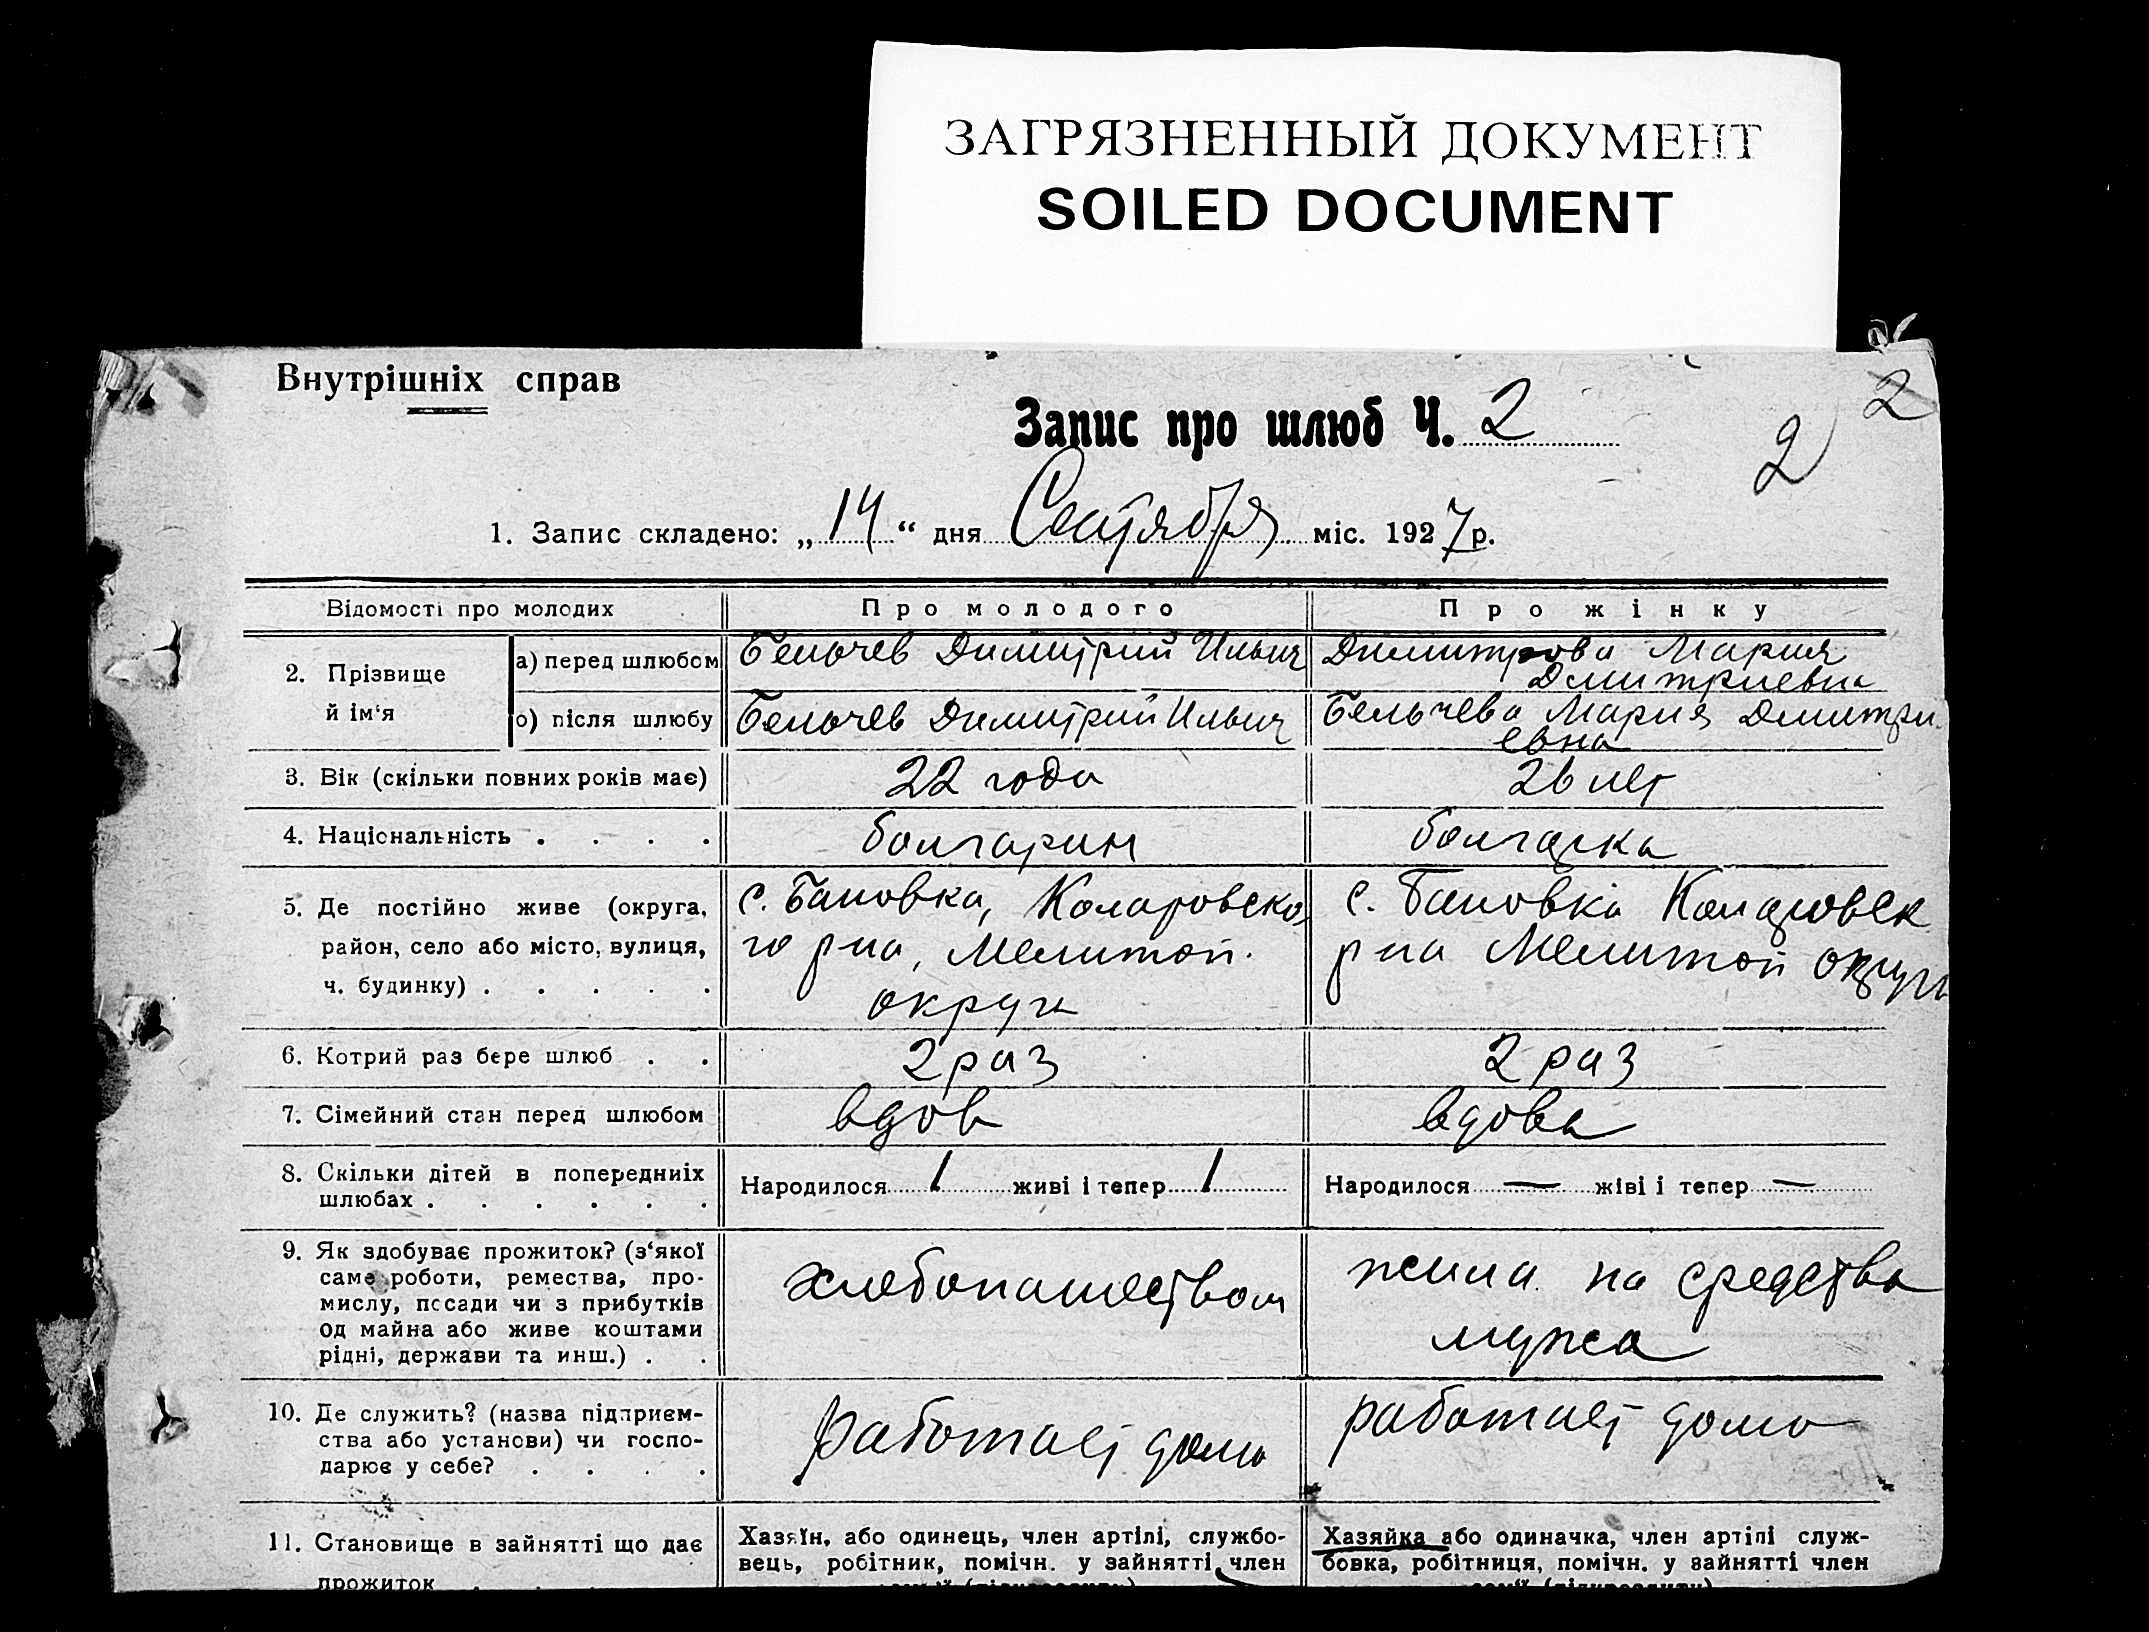 ЗАГРЯЗНЕННЫЙ ДОКУМЕНТ
SOILED DOCUMENT
Внутрішніх справ
2
Запис про шлюб Ч. 2
2
1. Запис складено: „14“ дня Сентября міс. 1927 р.
Відомості про молодих
Про молодого
Про жінку
2. Прізвище й ім‘я
а) перед шлюбом
Бельчев Димитрий Ильич
Димитрова Мария
Дмитриевна
о) після шлюбу
Бельчев Димитрий Ильич
Бельчева Мария Дмитри
евна
3. Вік (скільки повних років має)
22 года
26 лет
4. Національність . . . .
болгарин
болгарка
5. Де постійно живе (округа,
район, село або місто, вулиця,
ч. будинку) . . . . .
с. Бановка, Коларовско
го р на, Мелитоп.
округа
с. Бановка Коларовск
р на Мелитоп округа
6. Котрий раз бере шлюб . .
2 раз
2 раз
7. Сімейний стан перед шлюбом
вдов
вдова
8. Скільки дітей в попередниіх
шлюбах . . . . . .
Народилося 1 живі і тепер 1
Народилося — жіві і тепер —
9. Як здобуває прожиток? (з‘якої
саме роботи, ремества, про-
мислу, посади чи з прибутків
од майна або живе коштами
рідні, держави та инш.) . .
хлебопашеством
жила на средства
мужа
10. Де служить? (назва підприєм-
ства або установи) чи госпо-
дарює у себе? . . . .
работает дома
работает дома
11. Становище в зайнятті що дає
прожиток . . .
Хазяїн, або одинець, член артілі, службо-
вець, робітник, помічн. у зайнятті член
Хазяйка або одиначка, член артілі служ-
бовка, робітниця, помічн. у зайнятті член